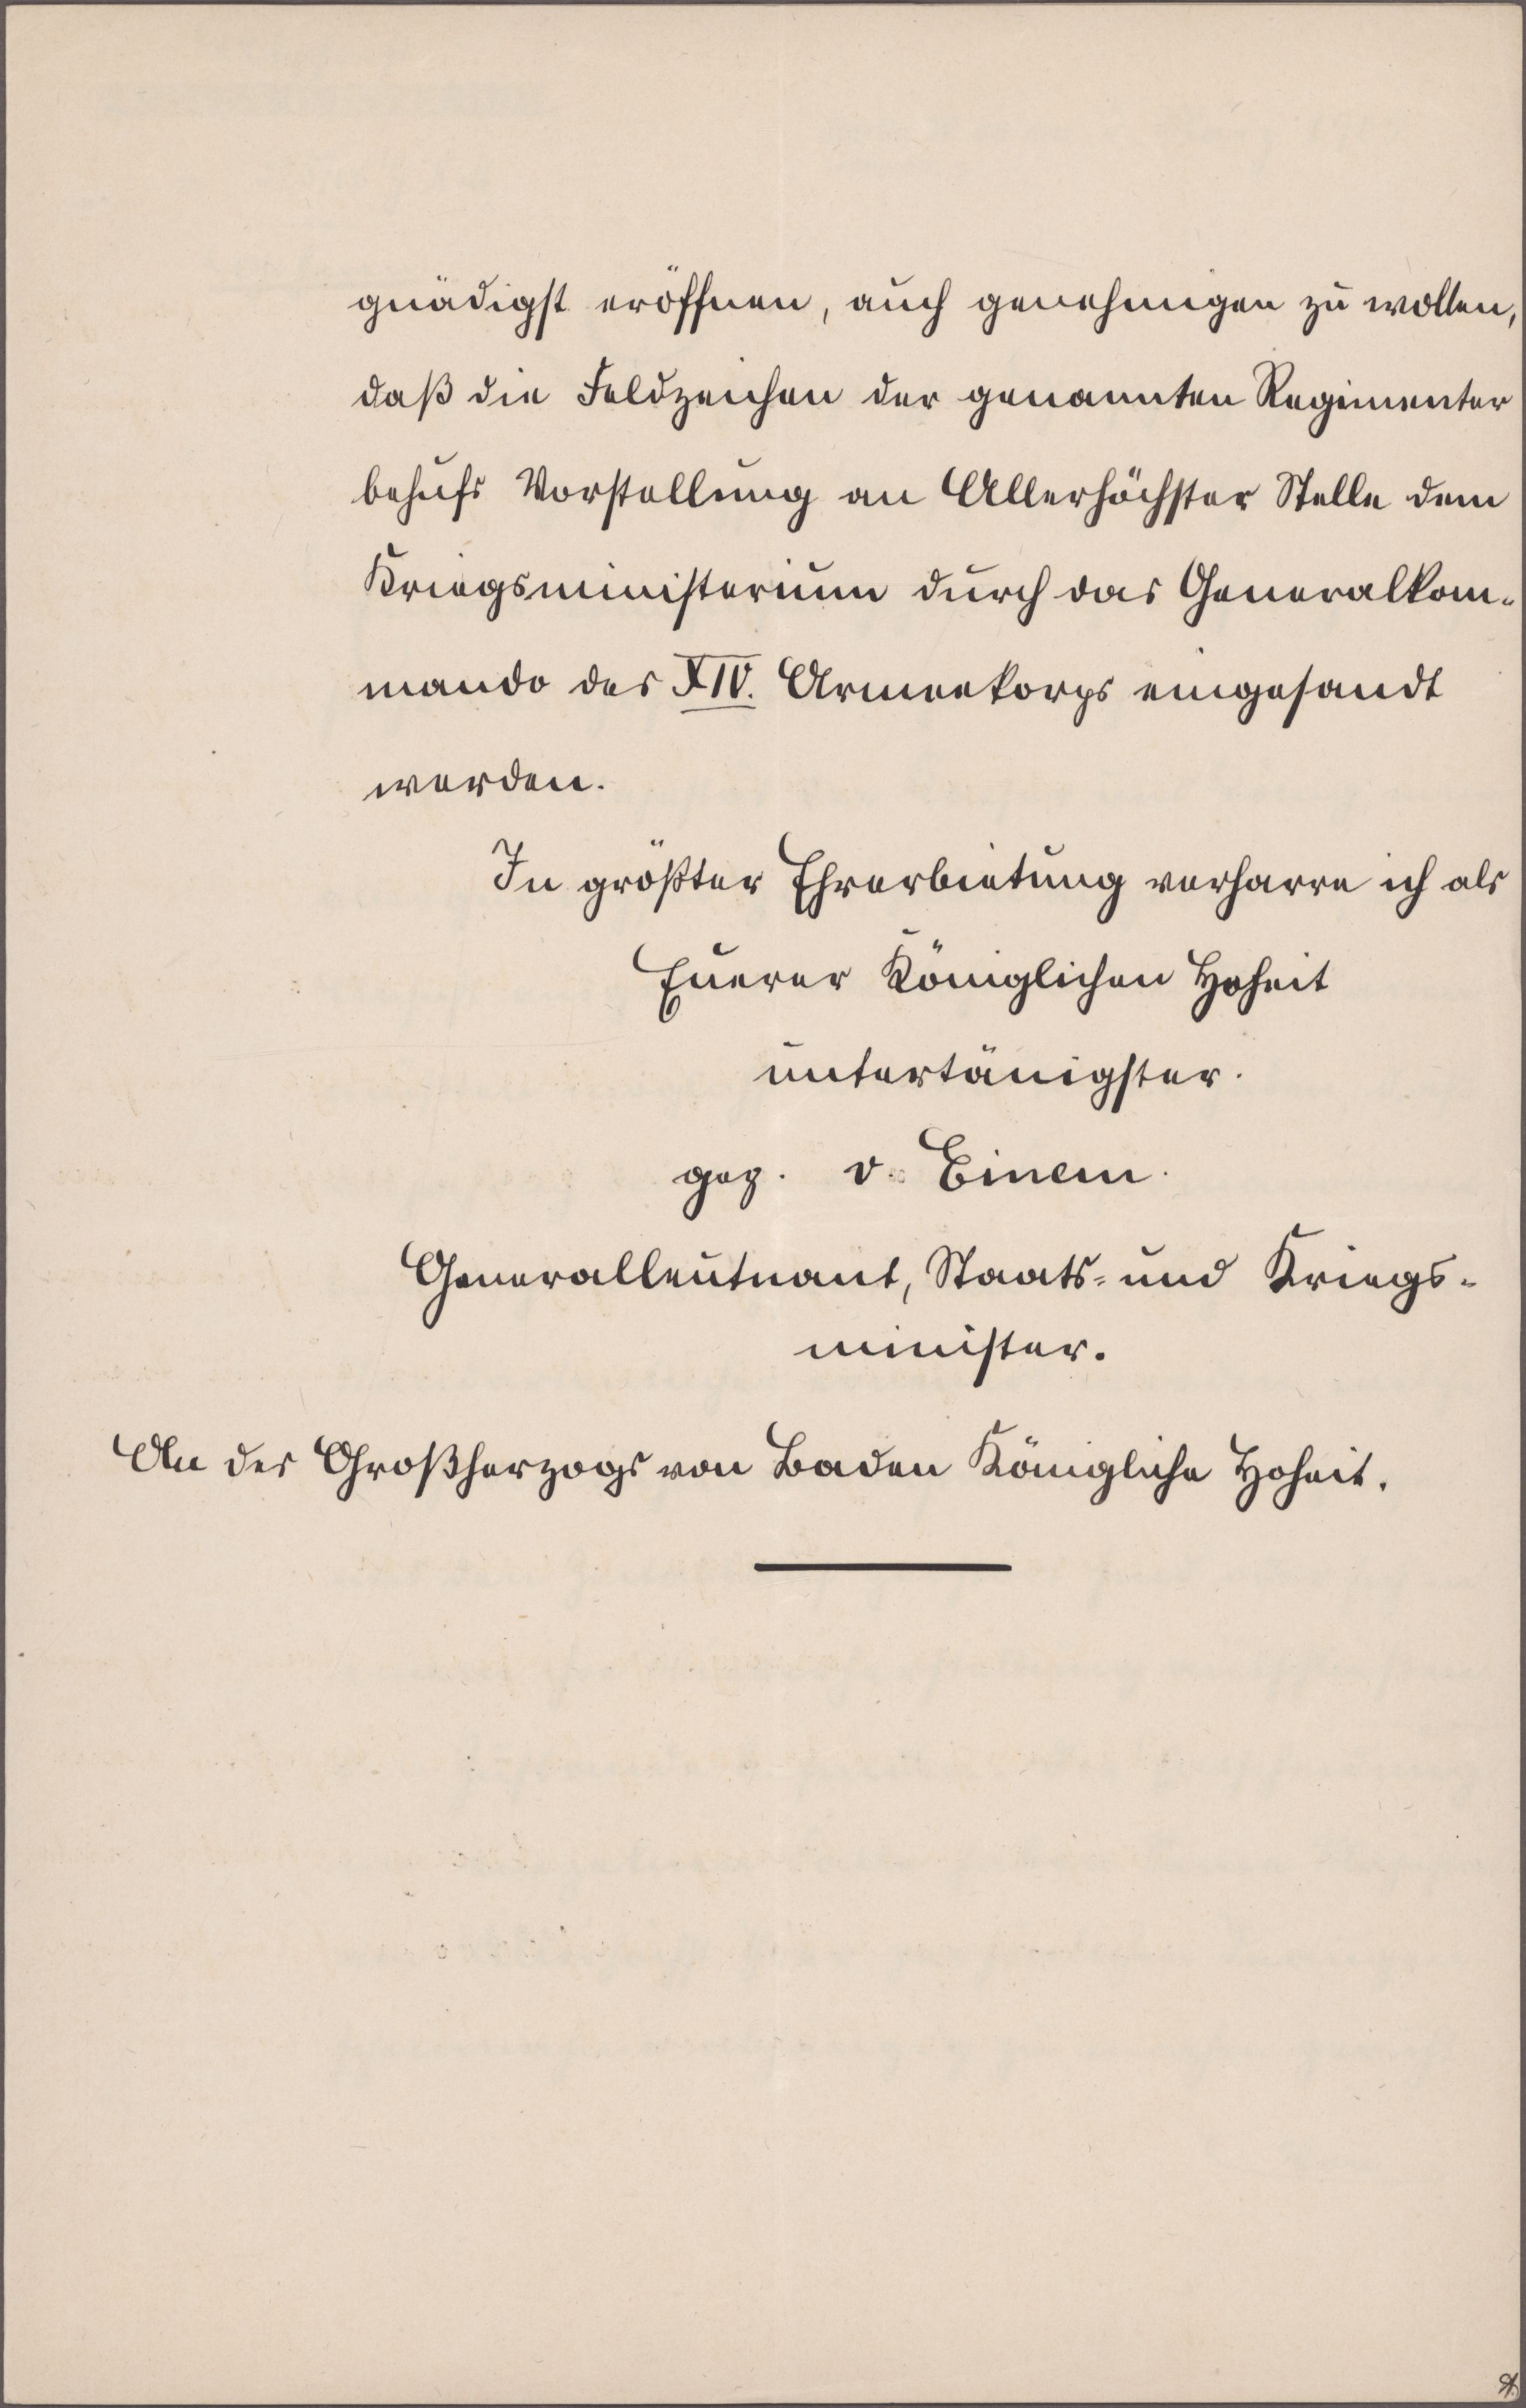 gnädigst eröffnen, auch genehmigen zu wollen,
daß die Feldzeichen der genannten Regimenter
behufs Vorstellung an Allerhöchster Stelle dem
Kriegsministerium durch das Generalkom-
mando des XIV. Armeekorps eingesandt
werden.
In größter Ehrerbietung verharre ich als
Euerer Königlichen Hoheit
untertänigster.
gez. v. Einem.
Generalleutnant, Staats- und Kriegs-
minister.
An des Großherzogs von Baden Königliche Hoheit.